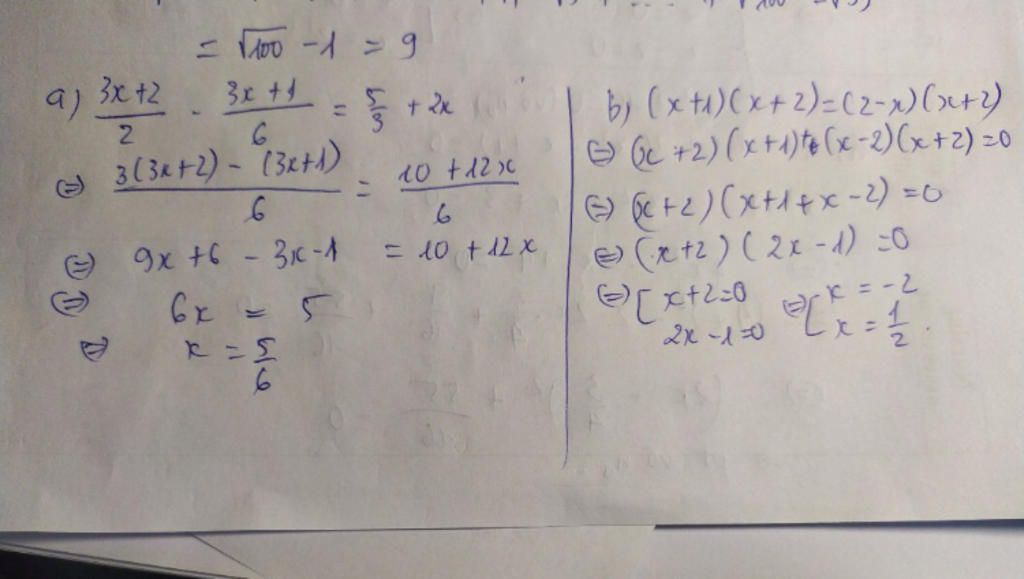 = √100 - 1 = 9
a) (3x+2)/2 - (3x+1)/6 = 5/3 + 2x
⇔ (3(3x+2) - (3x+1))/6 = (10+12x)/6
⇔ 9x+6 - 3x-1 = 10+12x
⇔ 6x = 5
⇔ x = 5/6
b) (x+1)(x+2)=(2-x)(x+2)
⇔ (x+2)(x+1)+(x-2)(x+2)=0
⇔ (x+2)(x+1+x-2)=0
⇔ (x+2)(2x-1)=0
⇔ [ x+2=0 ⇔ [ x = -2
2x-1=0 x = 1/2.